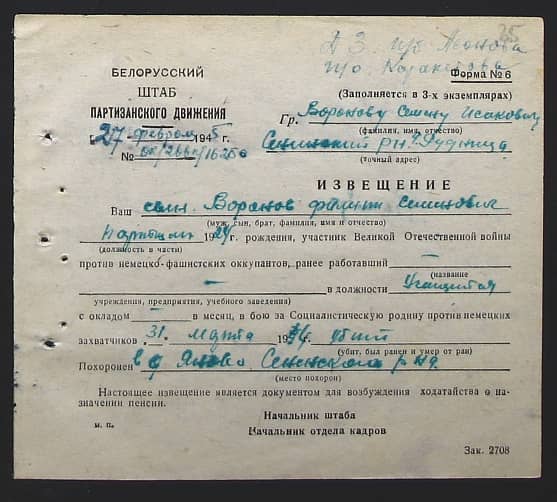 25
ДЗ п/б Леонова
п/о
БЕЛОРУССКИЙ
ШТАБ
ПАРТИЗАНСКОГО ДВИЖЕНИЯ
Форма № 6
(Заполняется в 3-х экземплярах)
„27 февраля 1945 г.
№
Гр. Воронову Семену Исаковичу
(фамилия, имя, отчество)
Сенненский р-н
(точный адрес)
ИЗВЕЩЕНИЕ
Ваш сын Воронов Семенович
(муж, сын, брат, фамилия, имя и отчество)
партизан 1924 г. рождения, участник Великой Отечественной войны
(должность в части)
против немецко-фашистских оккупантов, ранее работавший —
(название
— в должности учащийся
учреждения, предприятия, учебного заведения)
с окладом — в месяц, в бою за Социалистическую родину против немецких
захватчиков 31 марта 194 г. убит
(убит, был ранен и умер от ран)
Похоронен в д Яново Сенненского р-на
(место похорон)
Настоящее извещение является документом для возбуждения ходатайства о на-
значении пенсии.
Начальник штаба
м. п.
Начальник отдела кадров
Зак. 2708